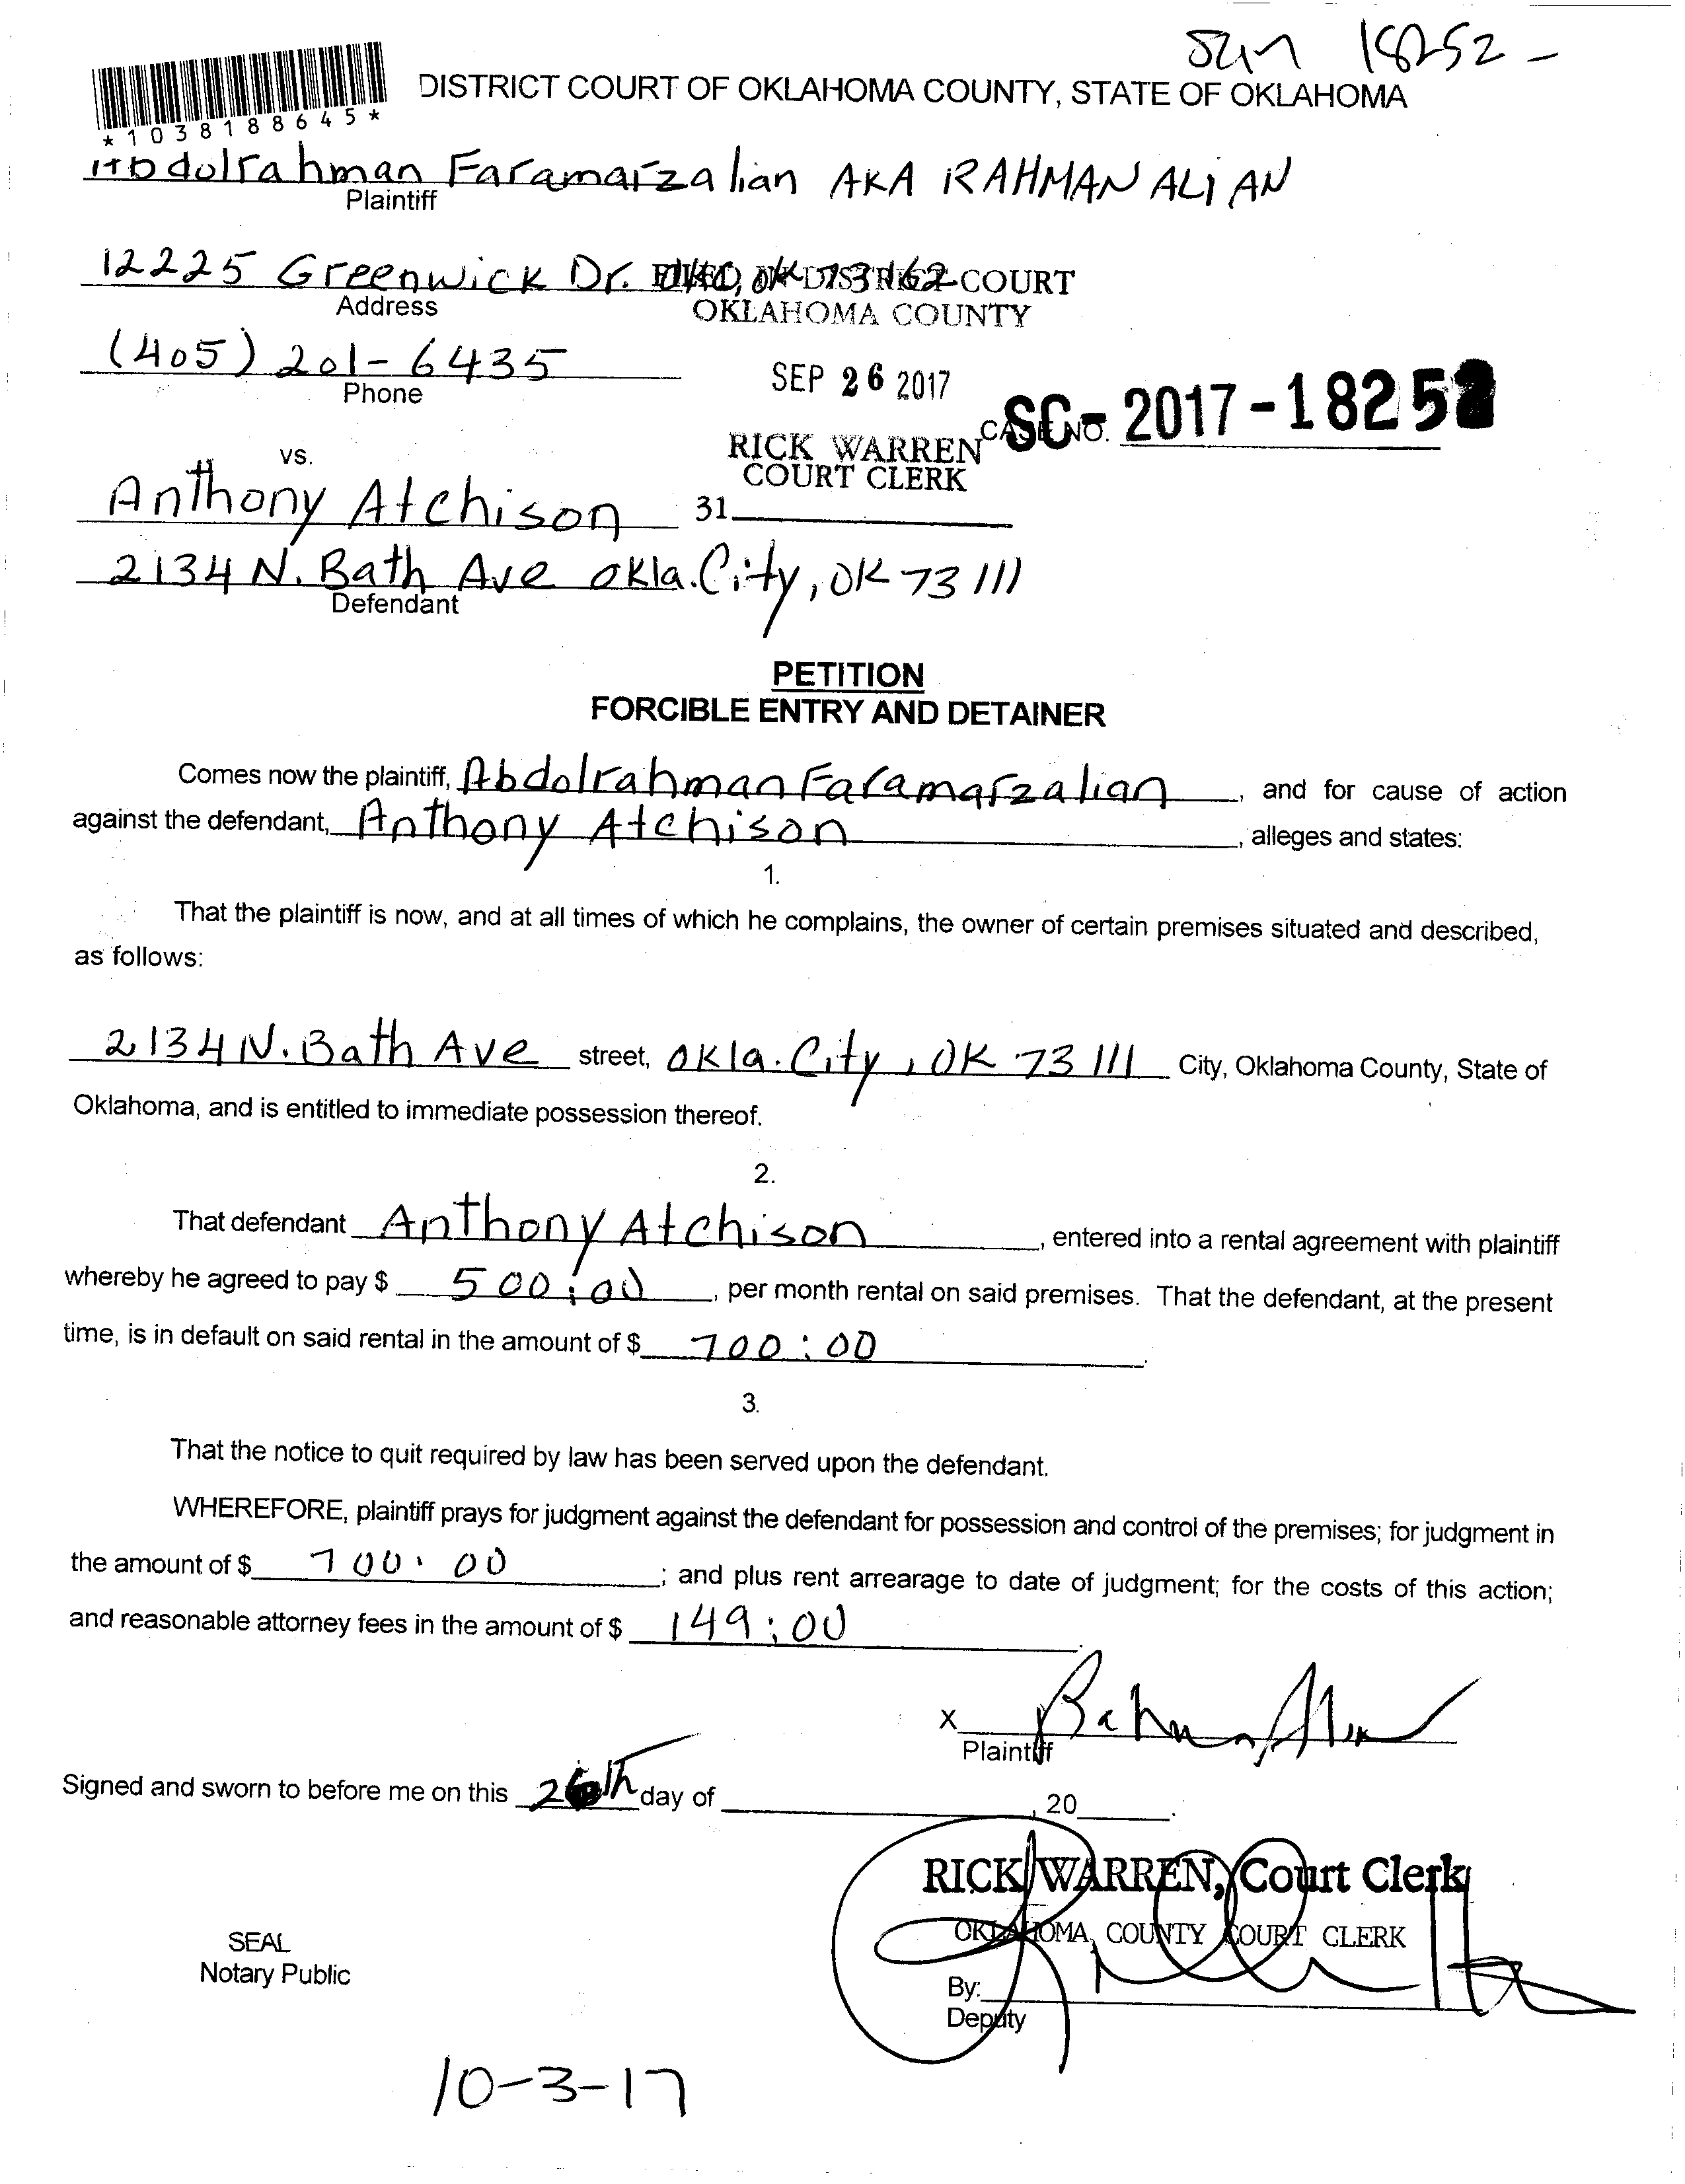 18252 -
*1038188645*
DISTRICT COURT OF OKLAHOMA COUNTY, STATE OF OKLAHOMA
Abdolrahman Faramarzalian AKA RAHMAN ALIAN
Plaintiff
12225 Greenwick Dr. OKC, OK 73162
FILED IN DISTRICT COURT
Address
OKLAHOMA COUNTY
(405) 201-6435
Phone
SEP 26 2017
CASE NO. SC-2017-18252
RICK WARREN
COURT CLERK
vs.
Anthony Atchison
31
2134 N. Bath Ave Okla. City, OK 73111
Defendant
PETITION
FORCIBLE ENTRY AND DETAINER
Comes now the plaintiff, Abdolrahman Faramarzalian, and for cause of action
against the defendant, Anthony Atchison, alleges and states:
1.
That the plaintiff is now, and at all times of which he complains, the owner of certain premises situated and described,
as follows:
2134 N. Bath Ave street, Okla. City, OK 73111 City, Oklahoma County, State of
Oklahoma, and is entitled to immediate possession thereof.
2.
That defendant Anthony Atchison, entered into a rental agreement with plaintiff
whereby he agreed to pay $ 500:00, per month rental on said premises. That the defendant, at the present
time, is in default on said rental in the amount of $ 700:00.
3.
That the notice to quit required by law has been served upon the defendant.
WHEREFORE, plaintiff prays for judgment against the defendant for possession and control of the premises; for judgment in
the amount of $ 700.00; and plus rent arrearage to date of judgment; for the costs of this action;
and reasonable attorney fees in the amount of $ 149:00.
X
Plaintiff
Signed and sworn to before me on this 26th day of , 20 .
RICK WARREN, Court Clerk
OKLAHOMA COUNTY COURT CLERK
SEAL
Notary Public
By:
Deputy
10-3-17